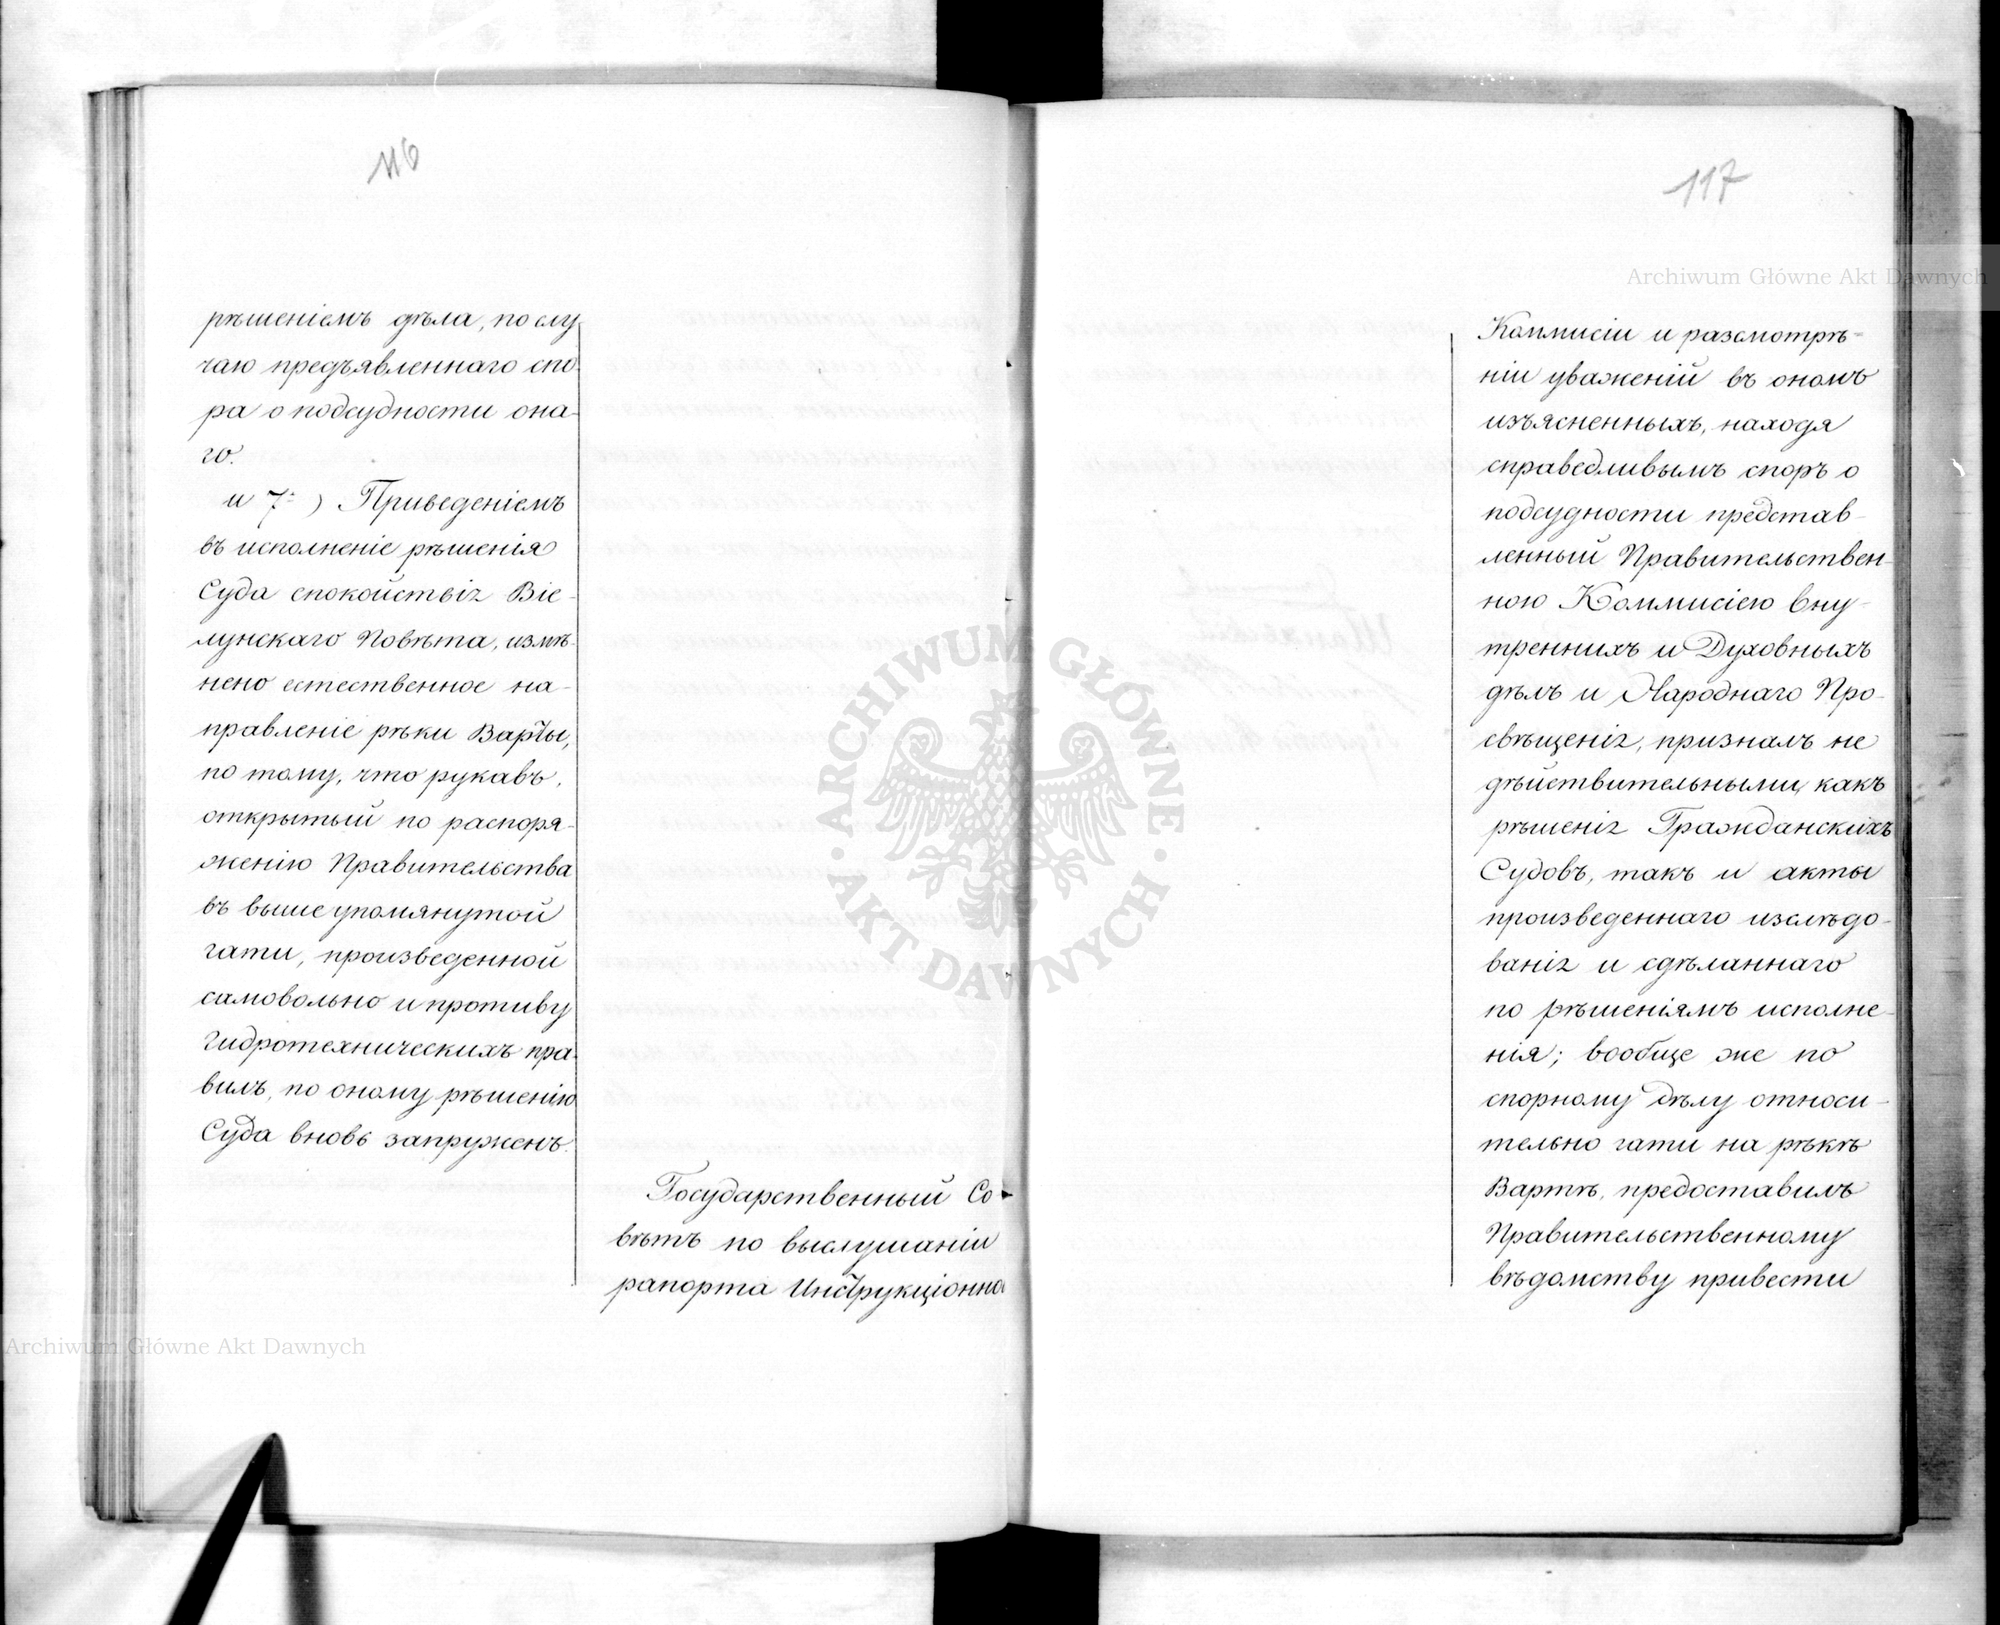 116
рѣшеніемъ дѣла, по слу
чаю предъявленнаго спо-
ра о подсудности она-
го.
и 7.) Приведеніемъ
въ исполненіе рѣшенія
Суда спокойствія Віе-
лунскаго Повѣта, измѣ-
нено естественное на-
правленіе рѣки Варты,
по тому, что рукавъ,
открытый по распоря-
женію Правительства
въ выше упомянутой
гати, произведенной
самовольно и противу
Гидротехническихъ пра-
вилъ, по оному рѣшенію
Суда вновь запруженъ.
Государственный Со-
вѣтъ по выслушаніи
рапорта Инструкціонно
117
Коммисіи и разсмотрѣ-
ніи уваженій въ ономъ
изъясненныхъ, находя
справедливымъ споръ о
подсудности представ-
ленный Правительствен-
ною Коммисіею Вну-
треннихъ и Духовныхъ
дѣлъ и Народнаго Про-
свѣщенія, призналъ не
дѣйствительными, какъ
рѣшенія Гражданскихъ
Судовъ, такъ и акты
произведеннаго изслѣдо-
ванія и сдѣланнаго
по рѣшеніямъ исполне-
нія; вообще же по
спорному дѣлу относи-
тельно гати на рѣкѣ
Вартѣ, предоставилъ
Правительственному
вѣдомству привести
Archiwum Główne Akt Dawnych
ARCHIWUM GŁÓWNE
AKT DAWNYCH
Archiwum Główne Akt Dawnych